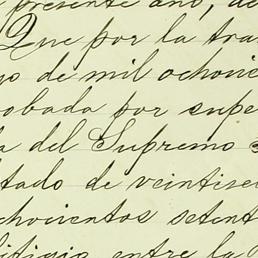 presente año, de
Que por la tra
go de mil ochocie
robada por supe
a del Supremo
tado de veintise
chocientos setent
litigio entre la